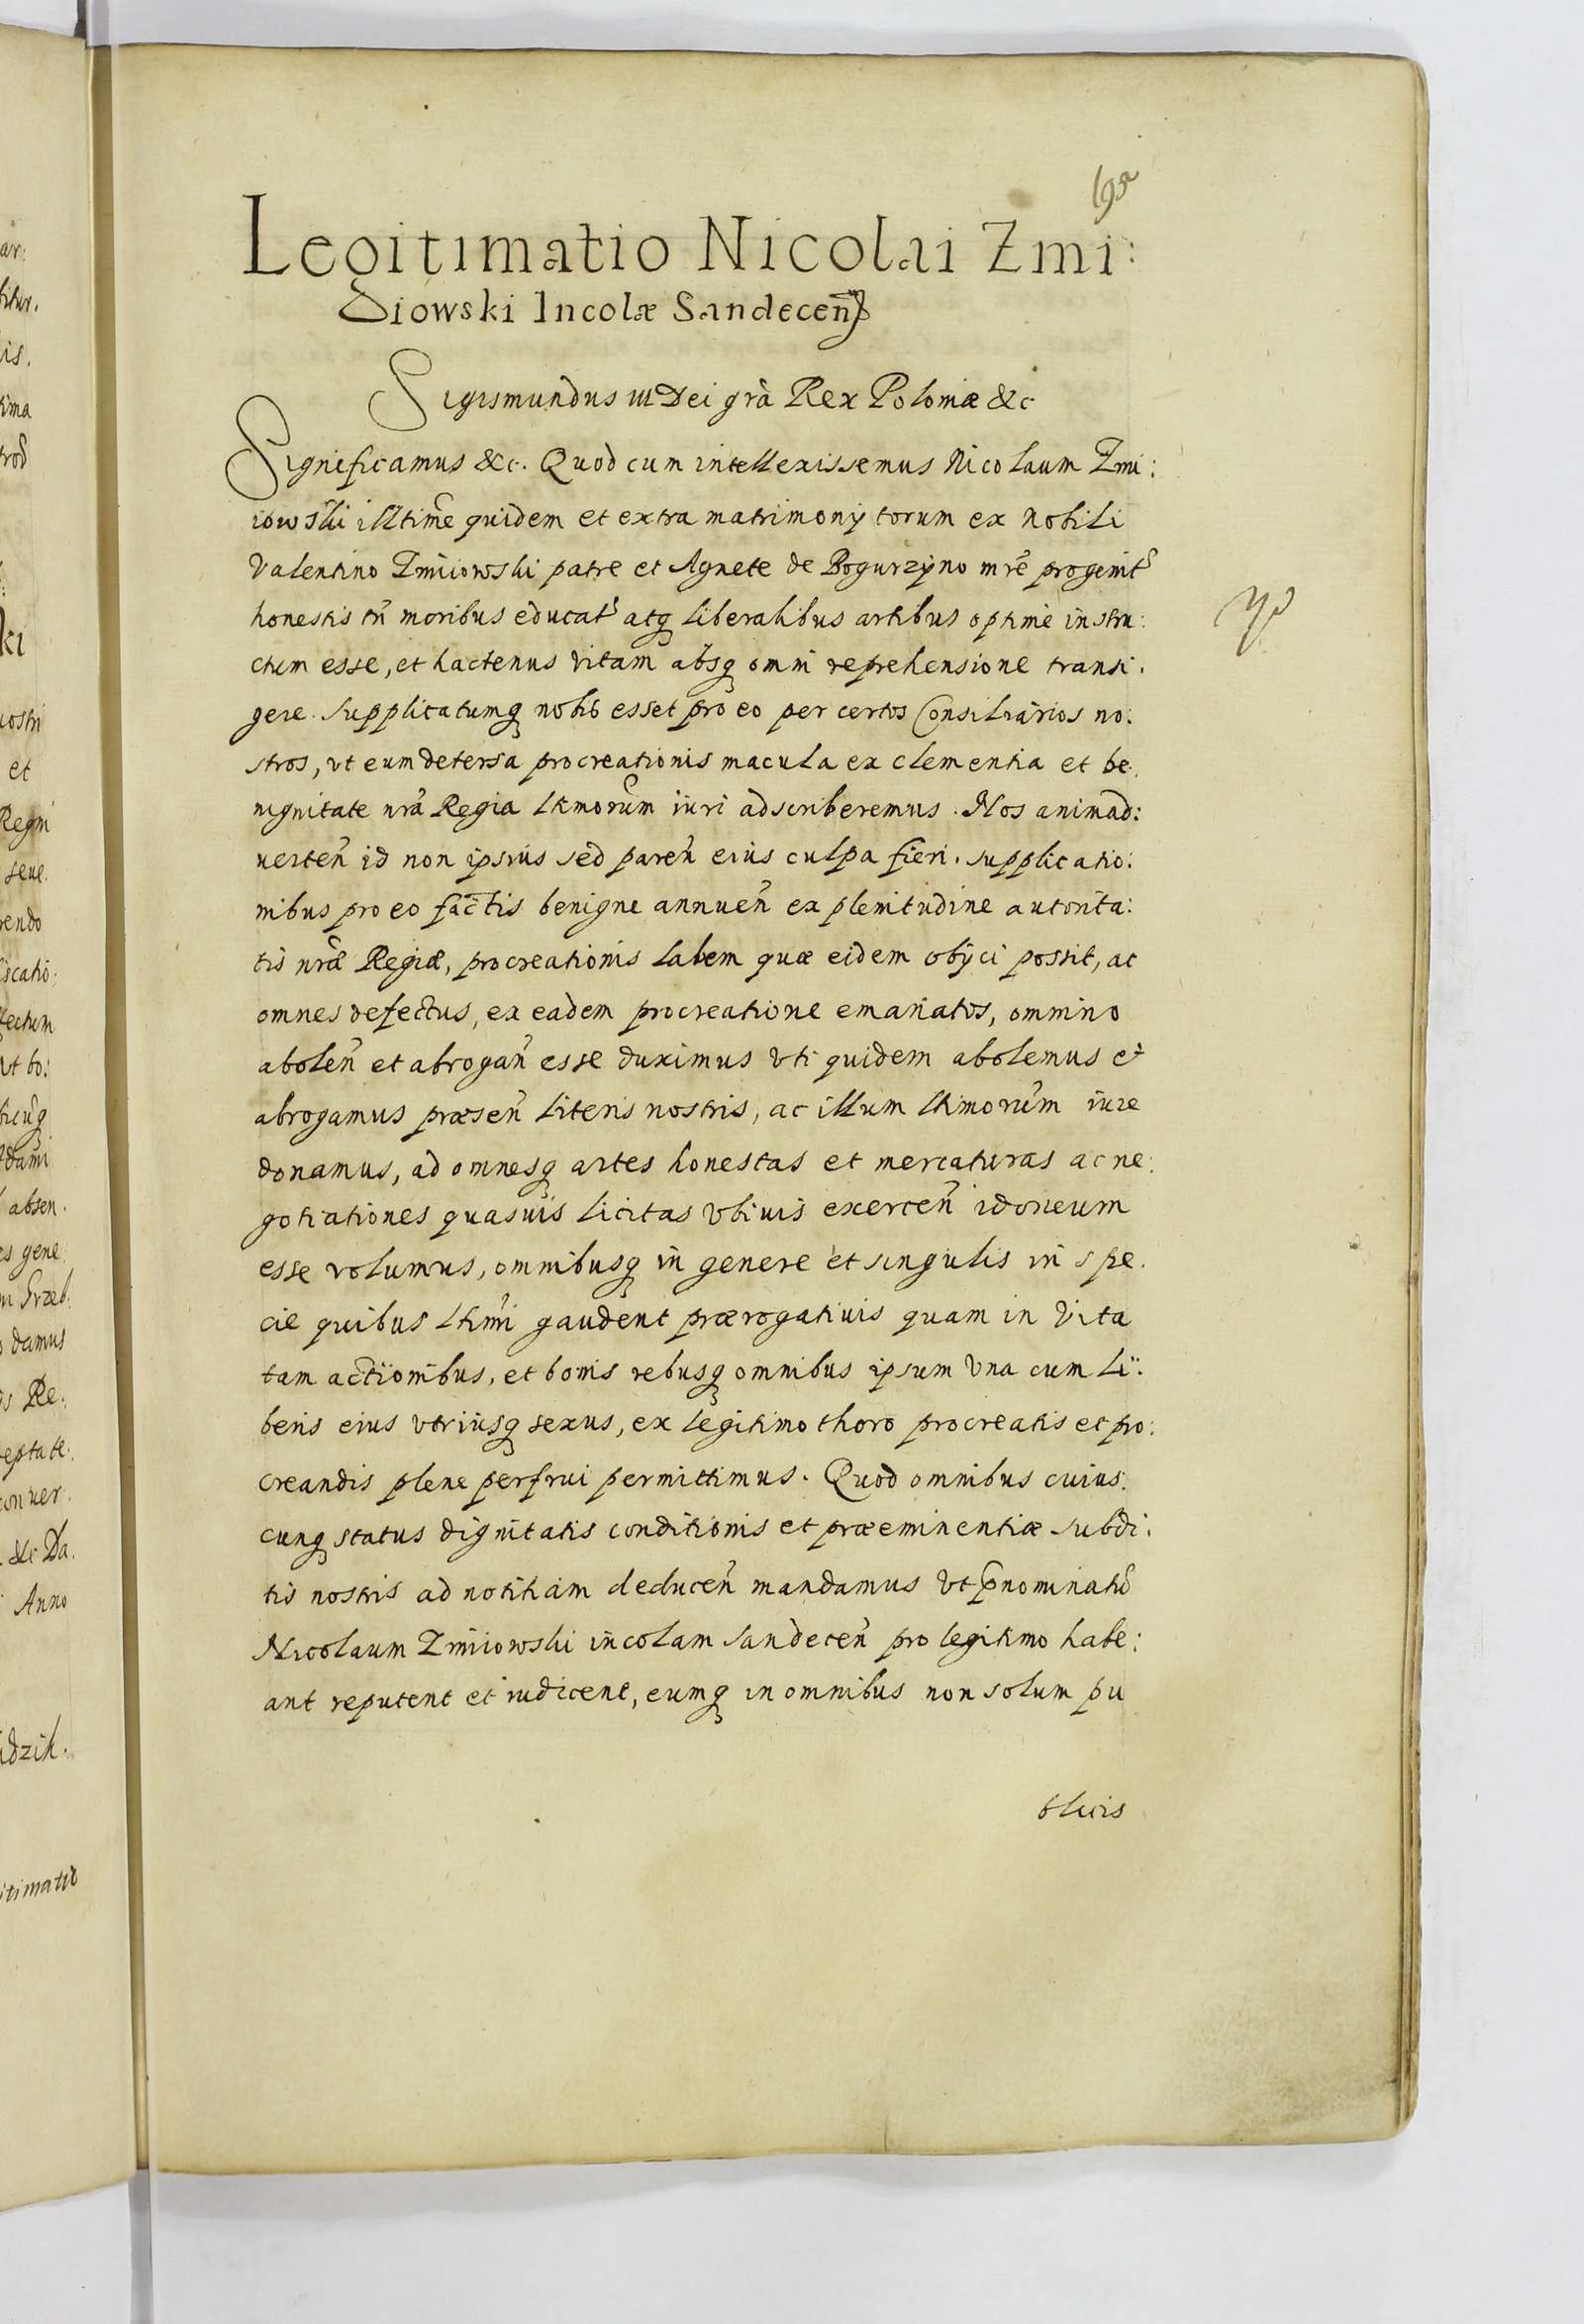 195
Legitimatio Nicolai Zmi:
diowski Incolæ Sandeceñ
Sigismundus III Dei grã Rex Poloniæ &c
Significamus &c. Quod cum intellexissemus Nicolaum Zmi:
iowski illtime quidem et extra matrimonij torum ex nobili
Valentino Zmiiowski patre et Agnete de Bogurzyno mrẽ progenit
honestis tñ moribus educat atq liberalibus artibus optime instru:
ctum esse, et hactenus vitam absq omni reprehensione transi.
gere. Supplicatumq nobis esset pro eo per certos Consiliarios no:
stros, vt eum detersa procreationis macula ex clementia et be.
nignitate nrã Regia Ltimorum iuri adscriberemus. Nos animad:
uerteñ id non ipsius sed pareñ eius culpa fieri. supplicatio:
nibus pro eo factis benigne annueñ ex plenitudine autorita:
tis nræ Regiæ, procreationis labem quæ eidem obijci possit, ac
omnes defectus, ex eadem procreatione emanatos, omnino
aboleñ et abrogañ esse duximus vti quidem abolemus et
abrogamus præseñ literis nostris, ac illum Ltimorum iure
donamus, ad omnesq artes honestas et mercaturas ac ne:
gotiationes quasuis licitas vbiuis exerceñ idoneum
esse volumus, omnibusq in genere et singulis in spe.
cie quibus Ltimi gaudent prærogatiuis quam in vita
tam actionibus, et bonis rebusq omnibus ipsum vna cum li:
beris eius vtriusq sexus, ex legitimo thoro procreatis et pro:
creandis plene perfrui permittimus. Quod omnibus cuius:
cunq status dignitatis conditionis et præeminentiæ subdi:
tis nostris ad notitiam deduceñ mandamus vt pnominatu
Nicolaum Zmiiowski incolam Sandeceñ pro legitimo habe:
ant reputent et iudicent, eumq in omnibus non solum pu
blicis